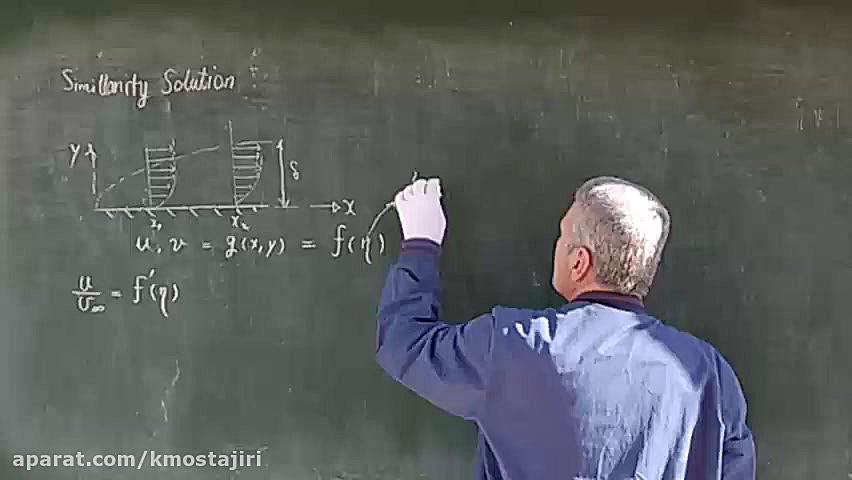 Simillarity Solution
y
δ
x₁ x₂ x
u, v = g(x,y) = f(η)
u/U∞ = f'(η)
aparat.com/kmostajiri